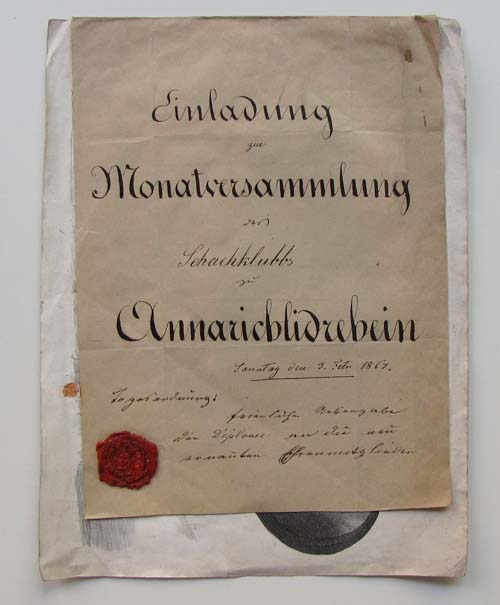 Einladung
zur
Monatversammlung
des
Schachklubbs
zu
Annarichlidrebein
Sonntag den 3. Febr 1861.
Tagesordnung:
feierliche Uebergabe
der Diplome an die neu
ernannten Ehrenmitglieder